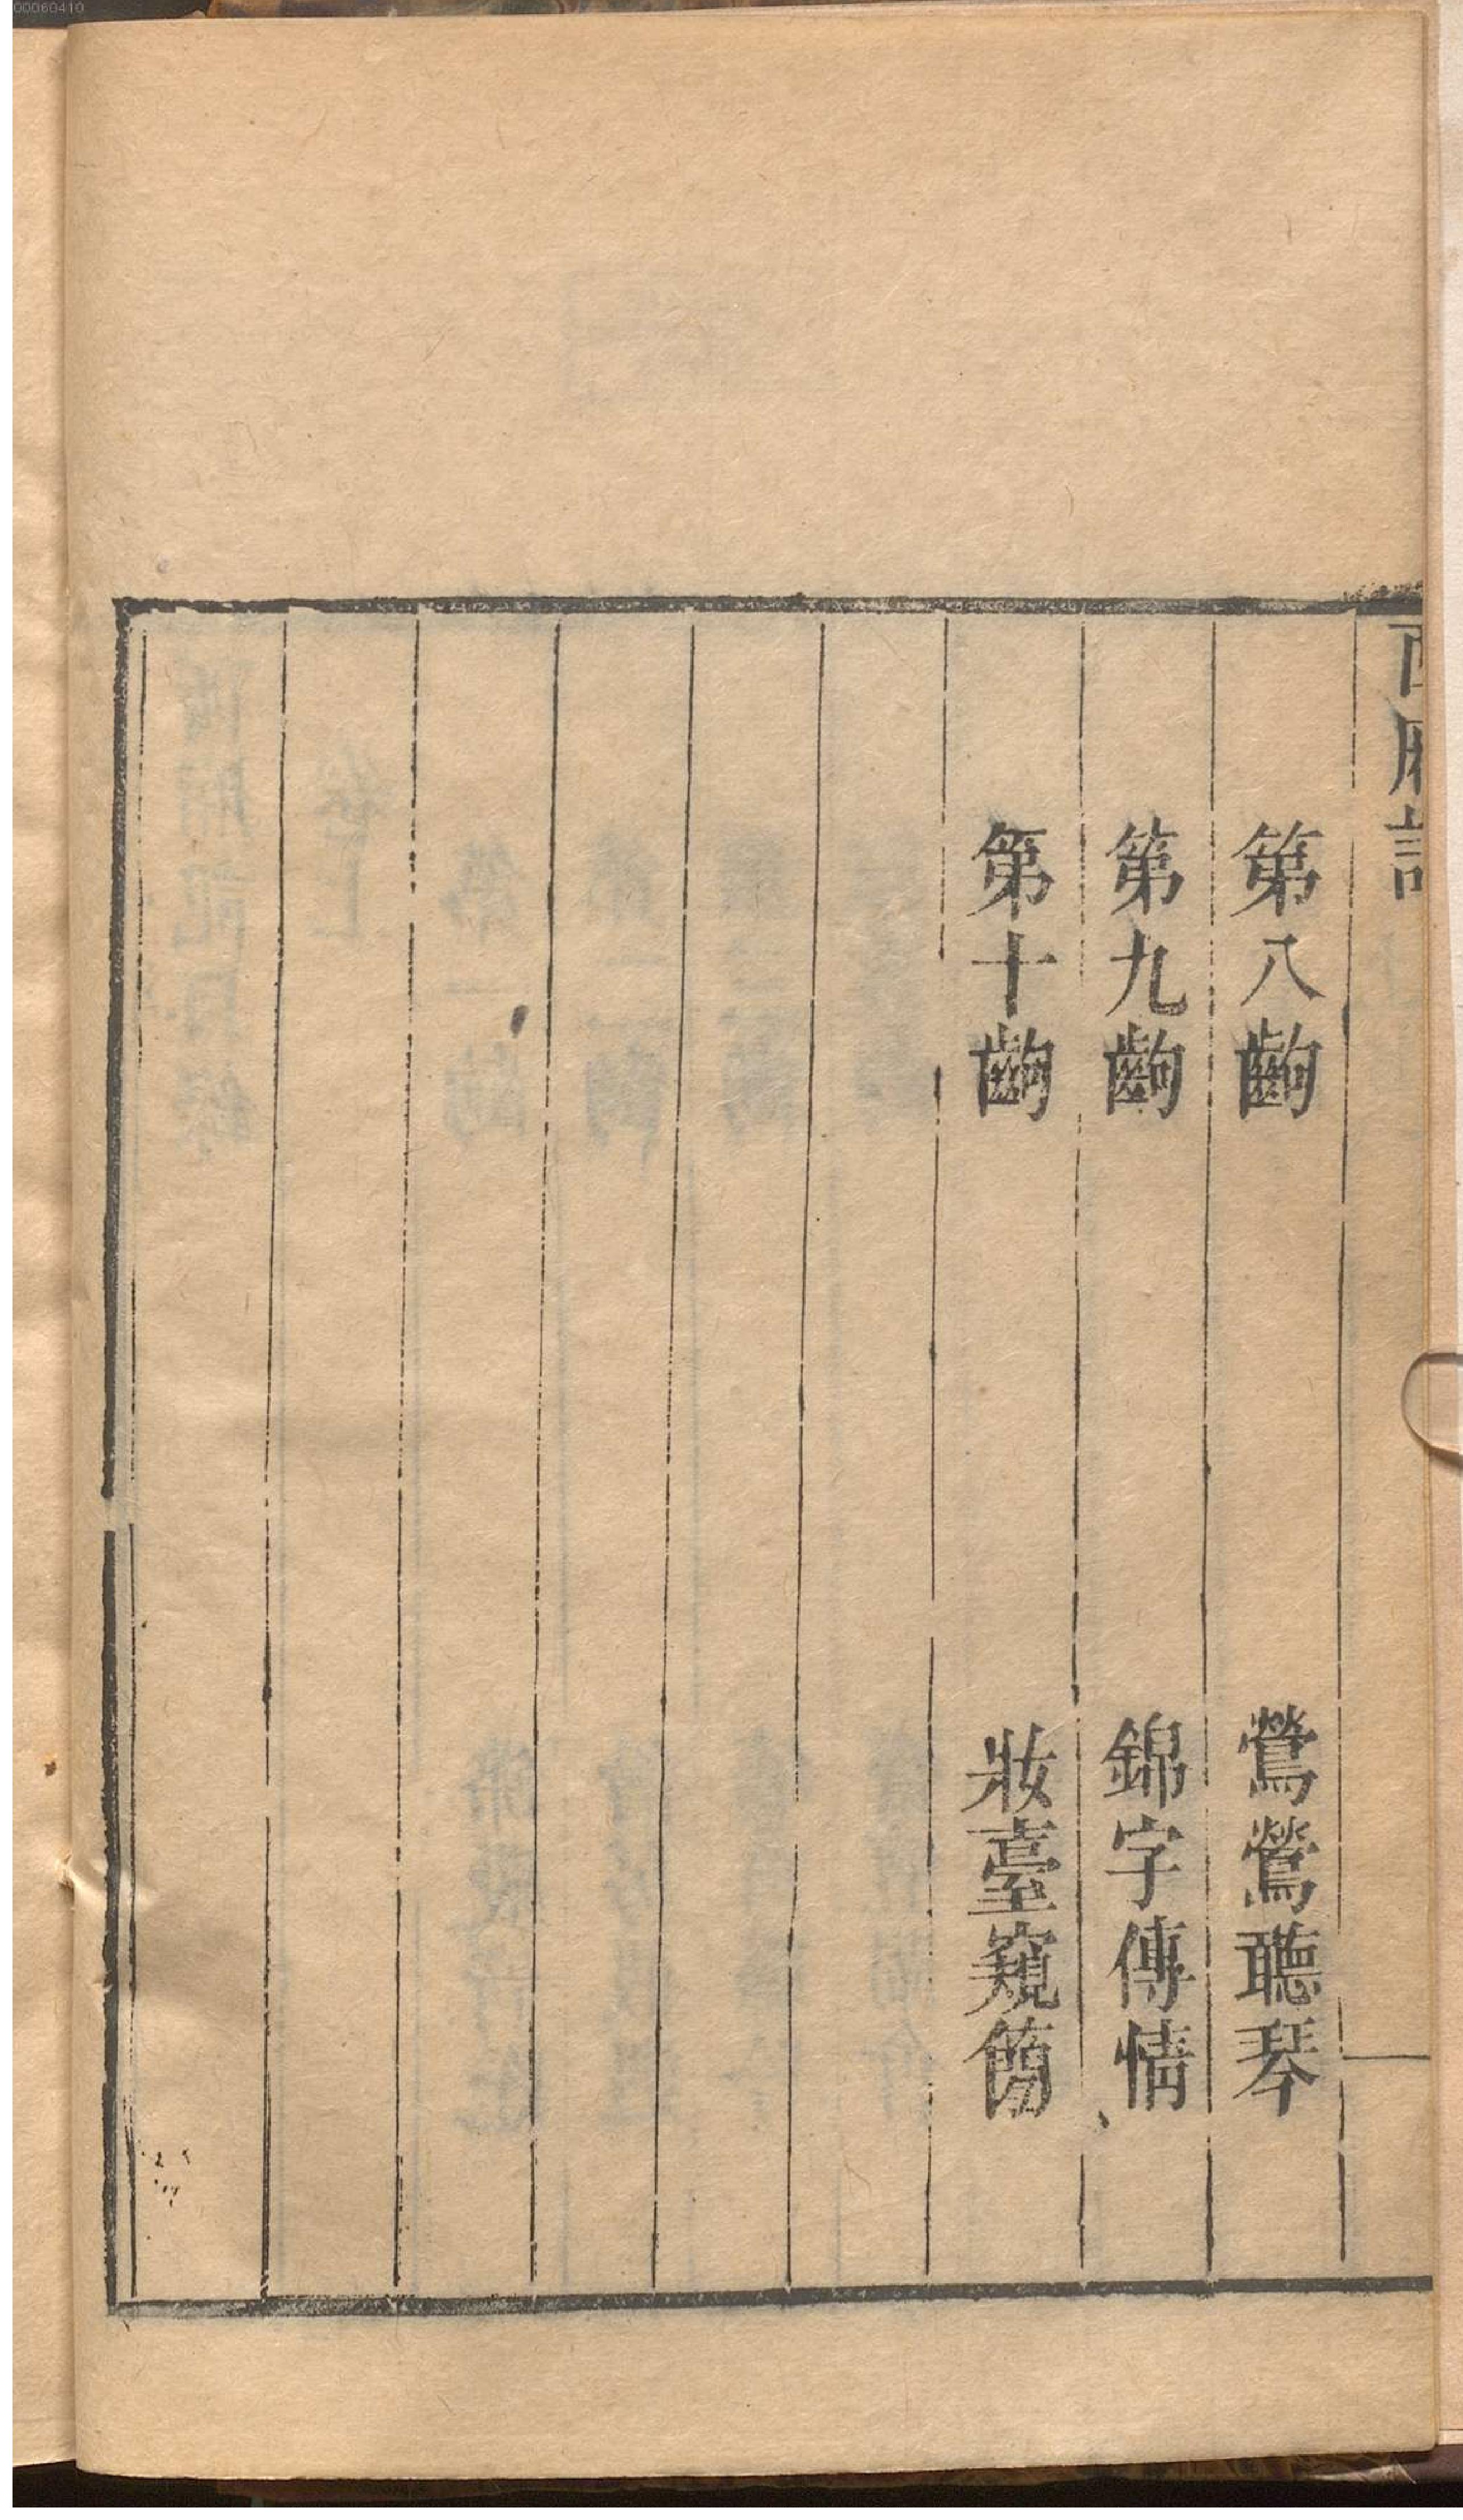 第八齣 鶯鶯聽琴
第九齣 錦字傳情
第十齣 妝臺窺簡
00060410